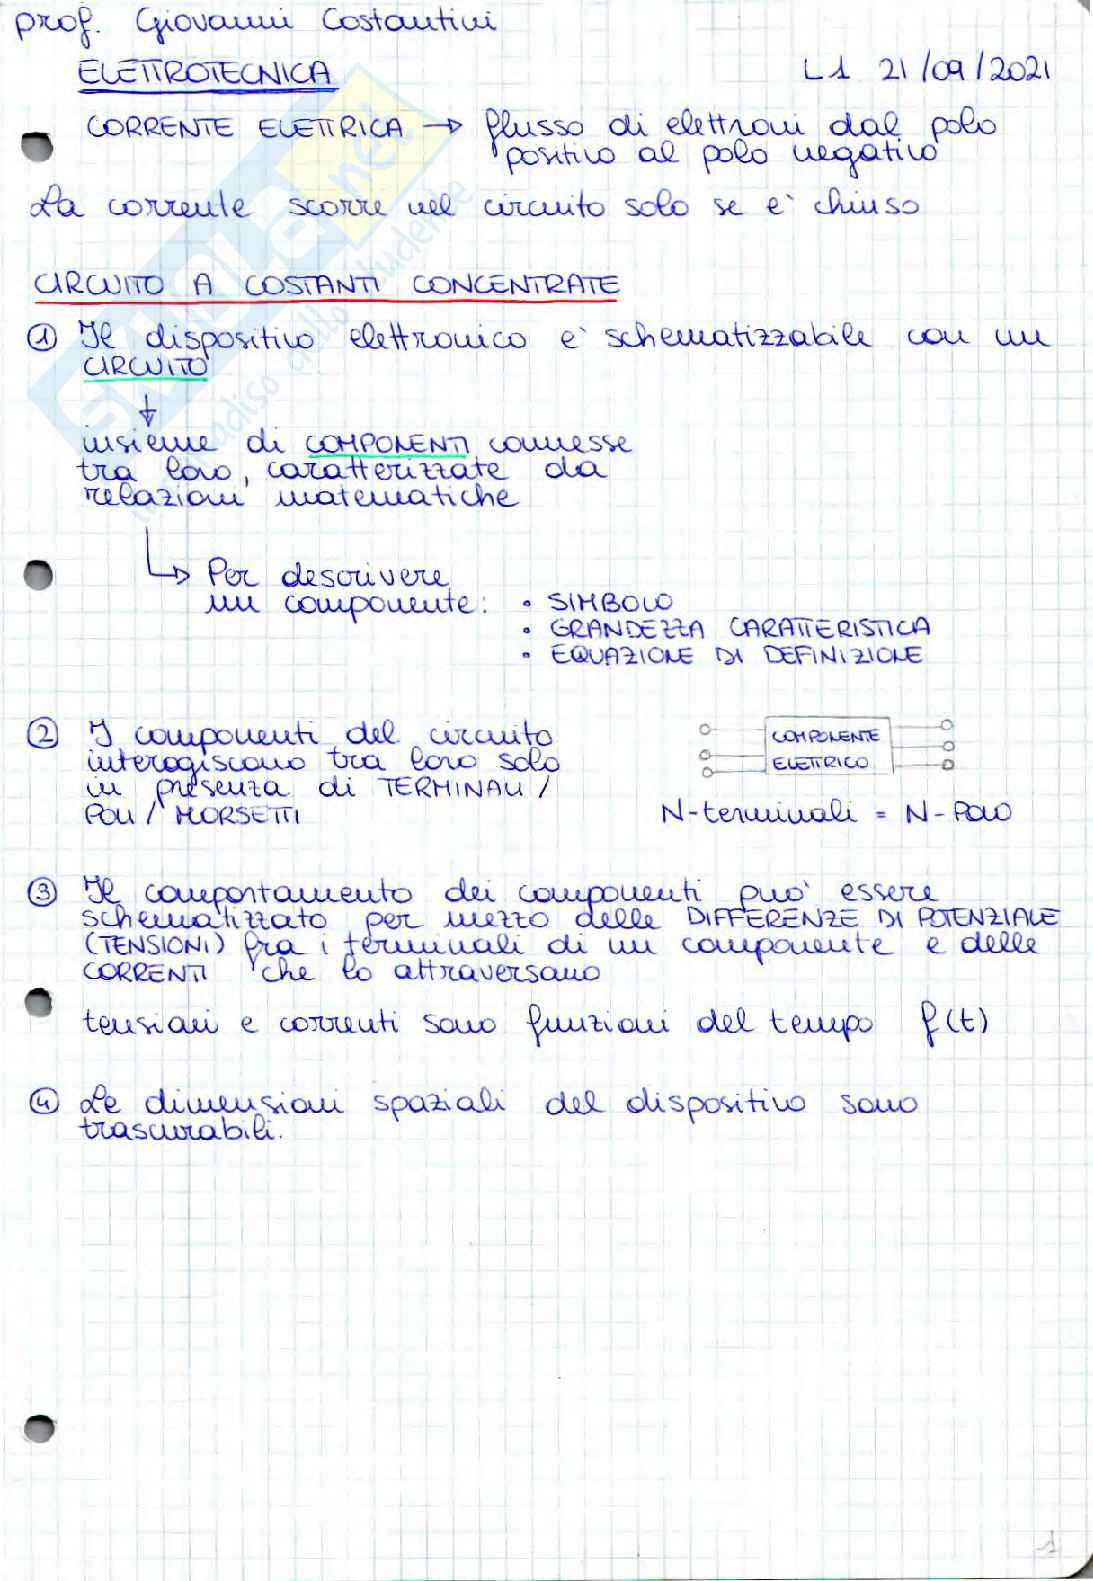 prof. Giovanni Costantini
ELETTROTECNICA
L1 21/09/2021
CORRENTE ELETTRICA → flusso di elettroni dal polo
positivo al polo negativo
La corrente scorre nel circuito solo se e' chiuso
CIRCUITO A COSTANTI CONCENTRATE
① Il dispositivo elettronico e' schematizzabile con un
CIRCUITO
↓
insieme di COMPONENTI connesse
tra loro, caratterizzate da
relazioni matematiche
↳ Per descrivere
un componente: • SIMBOLO
• GRANDEZZA CARATTERISTICA
• EQUAZIONE DI DEFINIZIONE
② I componenti del circuito
interagiscono tra loro solo
in presenza di TERMINALI /
POLI / MORSETTI
COMPONENTE
ELETTRICO
N-terminali = N-POLO
③ Il comportamento dei componenti puo' essere
schematizzato per mezzo delle DIFFERENZE DI POTENZIALE
(TENSIONI) fra i terminali di un componente e delle
CORRENTI che lo attraversano
tensioni e correnti sono funzioni del tempo f(t)
④ Le dimensioni spaziali del dispositivo sono
trascurabili.
SKUOLA.net
il paradiso dello studente
1